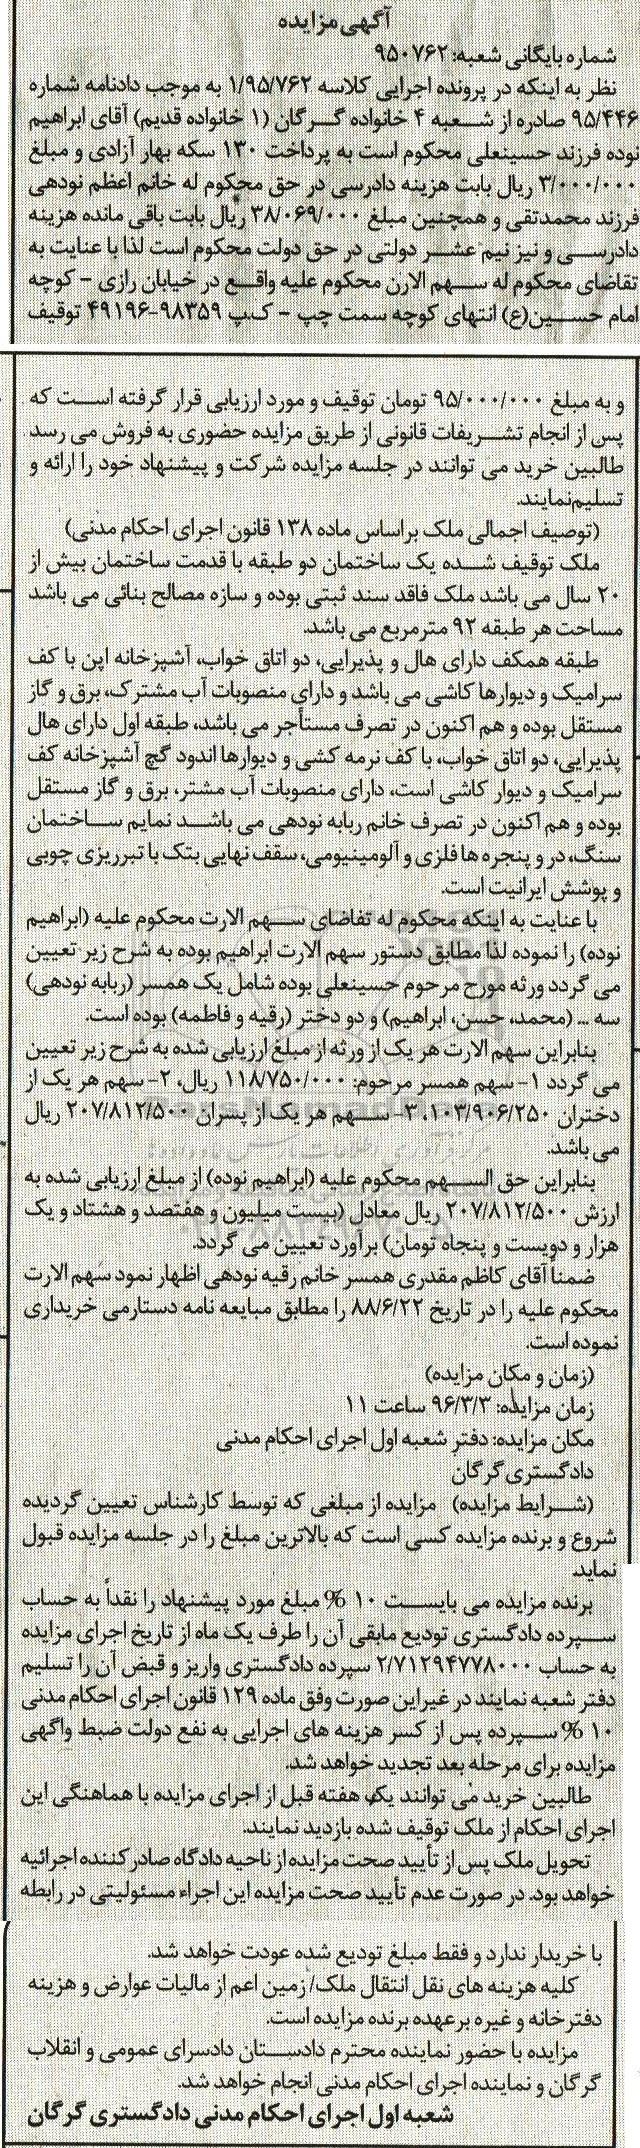 آگهی مزایده
شماره بایگانی شعبه: ۹۵۰۷۶۲
نظر به اینکه در پرونده اجرایی کلاسه ۱/۹۵/۷۶۲ به موجب دادنامه شماره
۹۵/۴۴۶ صادره از شعبه ۴ خانواده گرگان (۱ خانواده قدیم) آقای ابراهیم
نوده فرزند حسینعلی محکوم است به پرداخت ۱۳۰ سکه بهار آزادی و مبلغ
۳/۰۰۰/۰۰۰ ریال بابت هزینه دادرسی در حق محکوم له خانم اعظم نودهی
فرزند محمدتقی و همچنین مبلغ ۳۸/۰۶۹/۰۰۰ ریال بابت باقی مانده هزینه
دادرسی و نیز نیم عشر دولتی در حق دولت محکوم است لذا با عنایت به
تقاضای محکوم له سهم الارن محکوم علیه واقع در خیابان رازی - کوچه
امام حسین(ع) انتهای کوچه سمت چپ - ک.پ ۹۸۳۵۹-۴۹۱۹۶ توقیف
و به مبلغ ۹۵/۰۰۰/۰۰۰ تومان توقیف و مورد ارزیابی قرار گرفته است که
پس از انجام تشریفات قانونی از طریق مزایده حضوری به فروش می رسد
طالبین خرید می توانند در جلسه مزایده شرکت و پیشنهاد خود را ارائه و
تسلیم نمایند.
(توصیف اجمالی ملک براساس ماده ۱۳۸ قانون اجرای احکام مدنی)
ملک توقیف شده یک ساختمان دو طبقه با قدمت ساختمان بیش از
۲۰ سال می باشد ملک فاقد سند ثبتی بوده و سازه مصالح بنائی می باشد
مساحت هر طبقه ۹۲ مترمربع می باشد.
طبقه همکف دارای هال و پذیرایی، دو اتاق خواب، آشپزخانه اپن با کف
سرامیک و دیوارها کاشی می باشد و دارای منصوبات آب مشترک، برق و گاز
مستقل بوده و هم اکنون در تصرف مستأجر می باشد، طبقه اول دارای هال
پذیرایی، دو اتاق خواب، با کف نرمه کشی و دیوارها اندود گچ آشپزخانه کف
سرامیک و دیوار کاشی است، دارای منصوبات آب مشتر، برق و گاز مستقل
بوده و هم اکنون در تصرف خانم ربابه نودهی می باشد نمایم ساختمان
سنگ، در و پنجره ها فلزی و آلومینیومی، سقف نهایی بتک با تبرریزی چوبی
و پوشش ایرانیت است.
با عنایت به اینکه محکوم له تفاضای سهم الارت محکوم علیه (ابراهیم
نوده) را نموده لذا مطابق دستور سهم الارت ابراهیم بوده به شرح زیر تعیین
می گردد ورثه مورح مرحوم حسینعلی بوده شامل یک همسر (ربابه نودهی)
سه ... (محمد، حسن، ابراهیم) و دو دختر (رقیه و فاطمه) بوده است.
بنابراین سهم الارت هر یک از ورثه از مبلغ ارزیابی شده به شرح زیر تعیین
می گردد ۱- سهم همسر مرحوم: ۱۱۸/۷۵۰/۰۰۰ ریال، ۲- سهم هر یک از
دختران ۱۰۳/۹۰۶/۲۵۰، ۳- سهم هر یک از پسران ۲۰۷/۸۱۲/۵۰۰ ریال
می باشد.
بنابراین حق السهم محکوم علیه (ابراهیم نوده) از مبلغ ارزیابی شده به
ارزش ۲۰۷/۸۱۲/۵۰۰ ریال معادل (بیست میلیون و هفتصد و هشتاد و یک
هزار و دویست و پنجاه تومان) برآورد تعیین می گردد.
ضمناً آقای کاظم مقدری همسر خانم رقیه نودهی اظهار نمود سهم الارت
محکوم علیه را در تاریخ ۸۸/۶/۲۲ را مطابق مبایعه نامه دستارمی خریداری
نموده است.
(زمان و مکان مزایده)
زمان مزایده: ۹۶/۳/۳ ساعت ۱۱
مکان مزایده: دفتر شعبه اول اجرای احکام مدنی
دادگستری گرگان
(شرایط مزایده) مزایده از مبلغی که توسط کارشناس تعیین گردیده
شروع و برنده مزایده کسی است که بالاترین مبلغ را در جلسه مزایده قبول
نماید.
برنده مزایده می بایست ۱۰ % مبلغ مورد پیشنهاد را نقداً به حساب
سپرده دادگستری تودیع مابقی آن را ظرف یک ماه از تاریخ اجرای مزایده
به حساب ۲/۷۱۲۹۴۷۷۸۰۰۰ سپرده دادگستری واریز و قبض آن را تسلیم
دفتر شعبه نمایند در غیر این صورت وفق ماده ۱۲۹ قانون اجرای احکام مدنی
۱۰ % سپرده پس از کسر هزینه های اجرایی به نفع دولت ضبط واگهی
مزایده برای مرحله بعد تجدید خواهد شد.
طالبین خرید می توانند یک هفته قبل از اجرای مزایده با هماهنگی این
اجرای احکام از ملک توقیف شده بازدید نمایند.
تحویل ملک پس از تأیید صحت مزایده از ناحیه دادگاه صادر کننده اجرائیه
خواهد بود. در صورت عدم تأیید صحت مزایده این اجراء مسئولیتی در رابطه
با خریدار ندارد و فقط مبلغ تودیع شده عودت خواهد شد.
کلیه هزینه های نقل انتقال ملک/ زمین اعم از مالیات عوارض و هزینه
دفترخانه و غیره برعهده برنده مزایده است.
مزایده با حضور نماینده محترم دادستان دادسرای عمومی و انقلاب
گرگان و نماینده اجرای احکام مدنی انجام خواهد شد.
شعبه اول اجرای احکام مدنی دادگستری گرگان